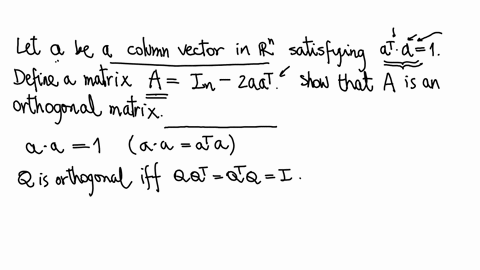 Let a be a column vector in ℝⁿ satisfying aᵀ·a = 1.
Define a matrix A = Iₙ − 2aaᵀ. Show that A is an
orthogonal matrix.
a·a = 1 (a·a = aᵀa)
Q is orthogonal iff QQᵀ = QᵀQ = I.